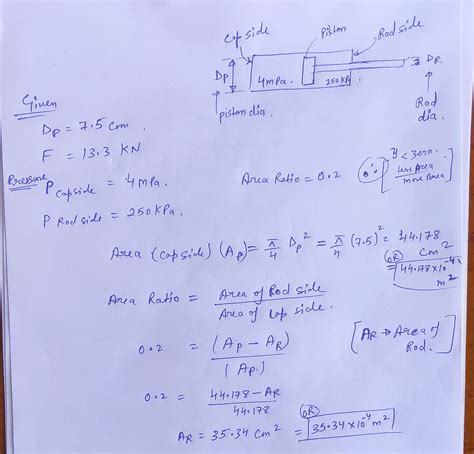 Cap side
piston
Rod side
Dp
4 mPa.
250 KPa
DR
piston dia.
Rod
dia.
Given
Dp = 7.5 cm.
F = 13.3 KN
Pressure P cap side = 4 mPa.
P Rod side = 250 kPa.
Area Ratio = 0.2
y < zero.
less Area
more Area
Area (cap side) (Ap) = π/4 Dp² = π/4 (7.5)² = 44.178 cm²
OR
= 44.178 × 10⁻⁴ m²
Area Ratio = Area of Rod side / Area of Cap side.
0.2 = (Ap - AR) / (Ap)
[AR → Area of Rod.]
0.2 = 44.178 - AR / 44.178
AR = 35.34 cm² (OR) = 35.34 × 10⁻⁴ m²